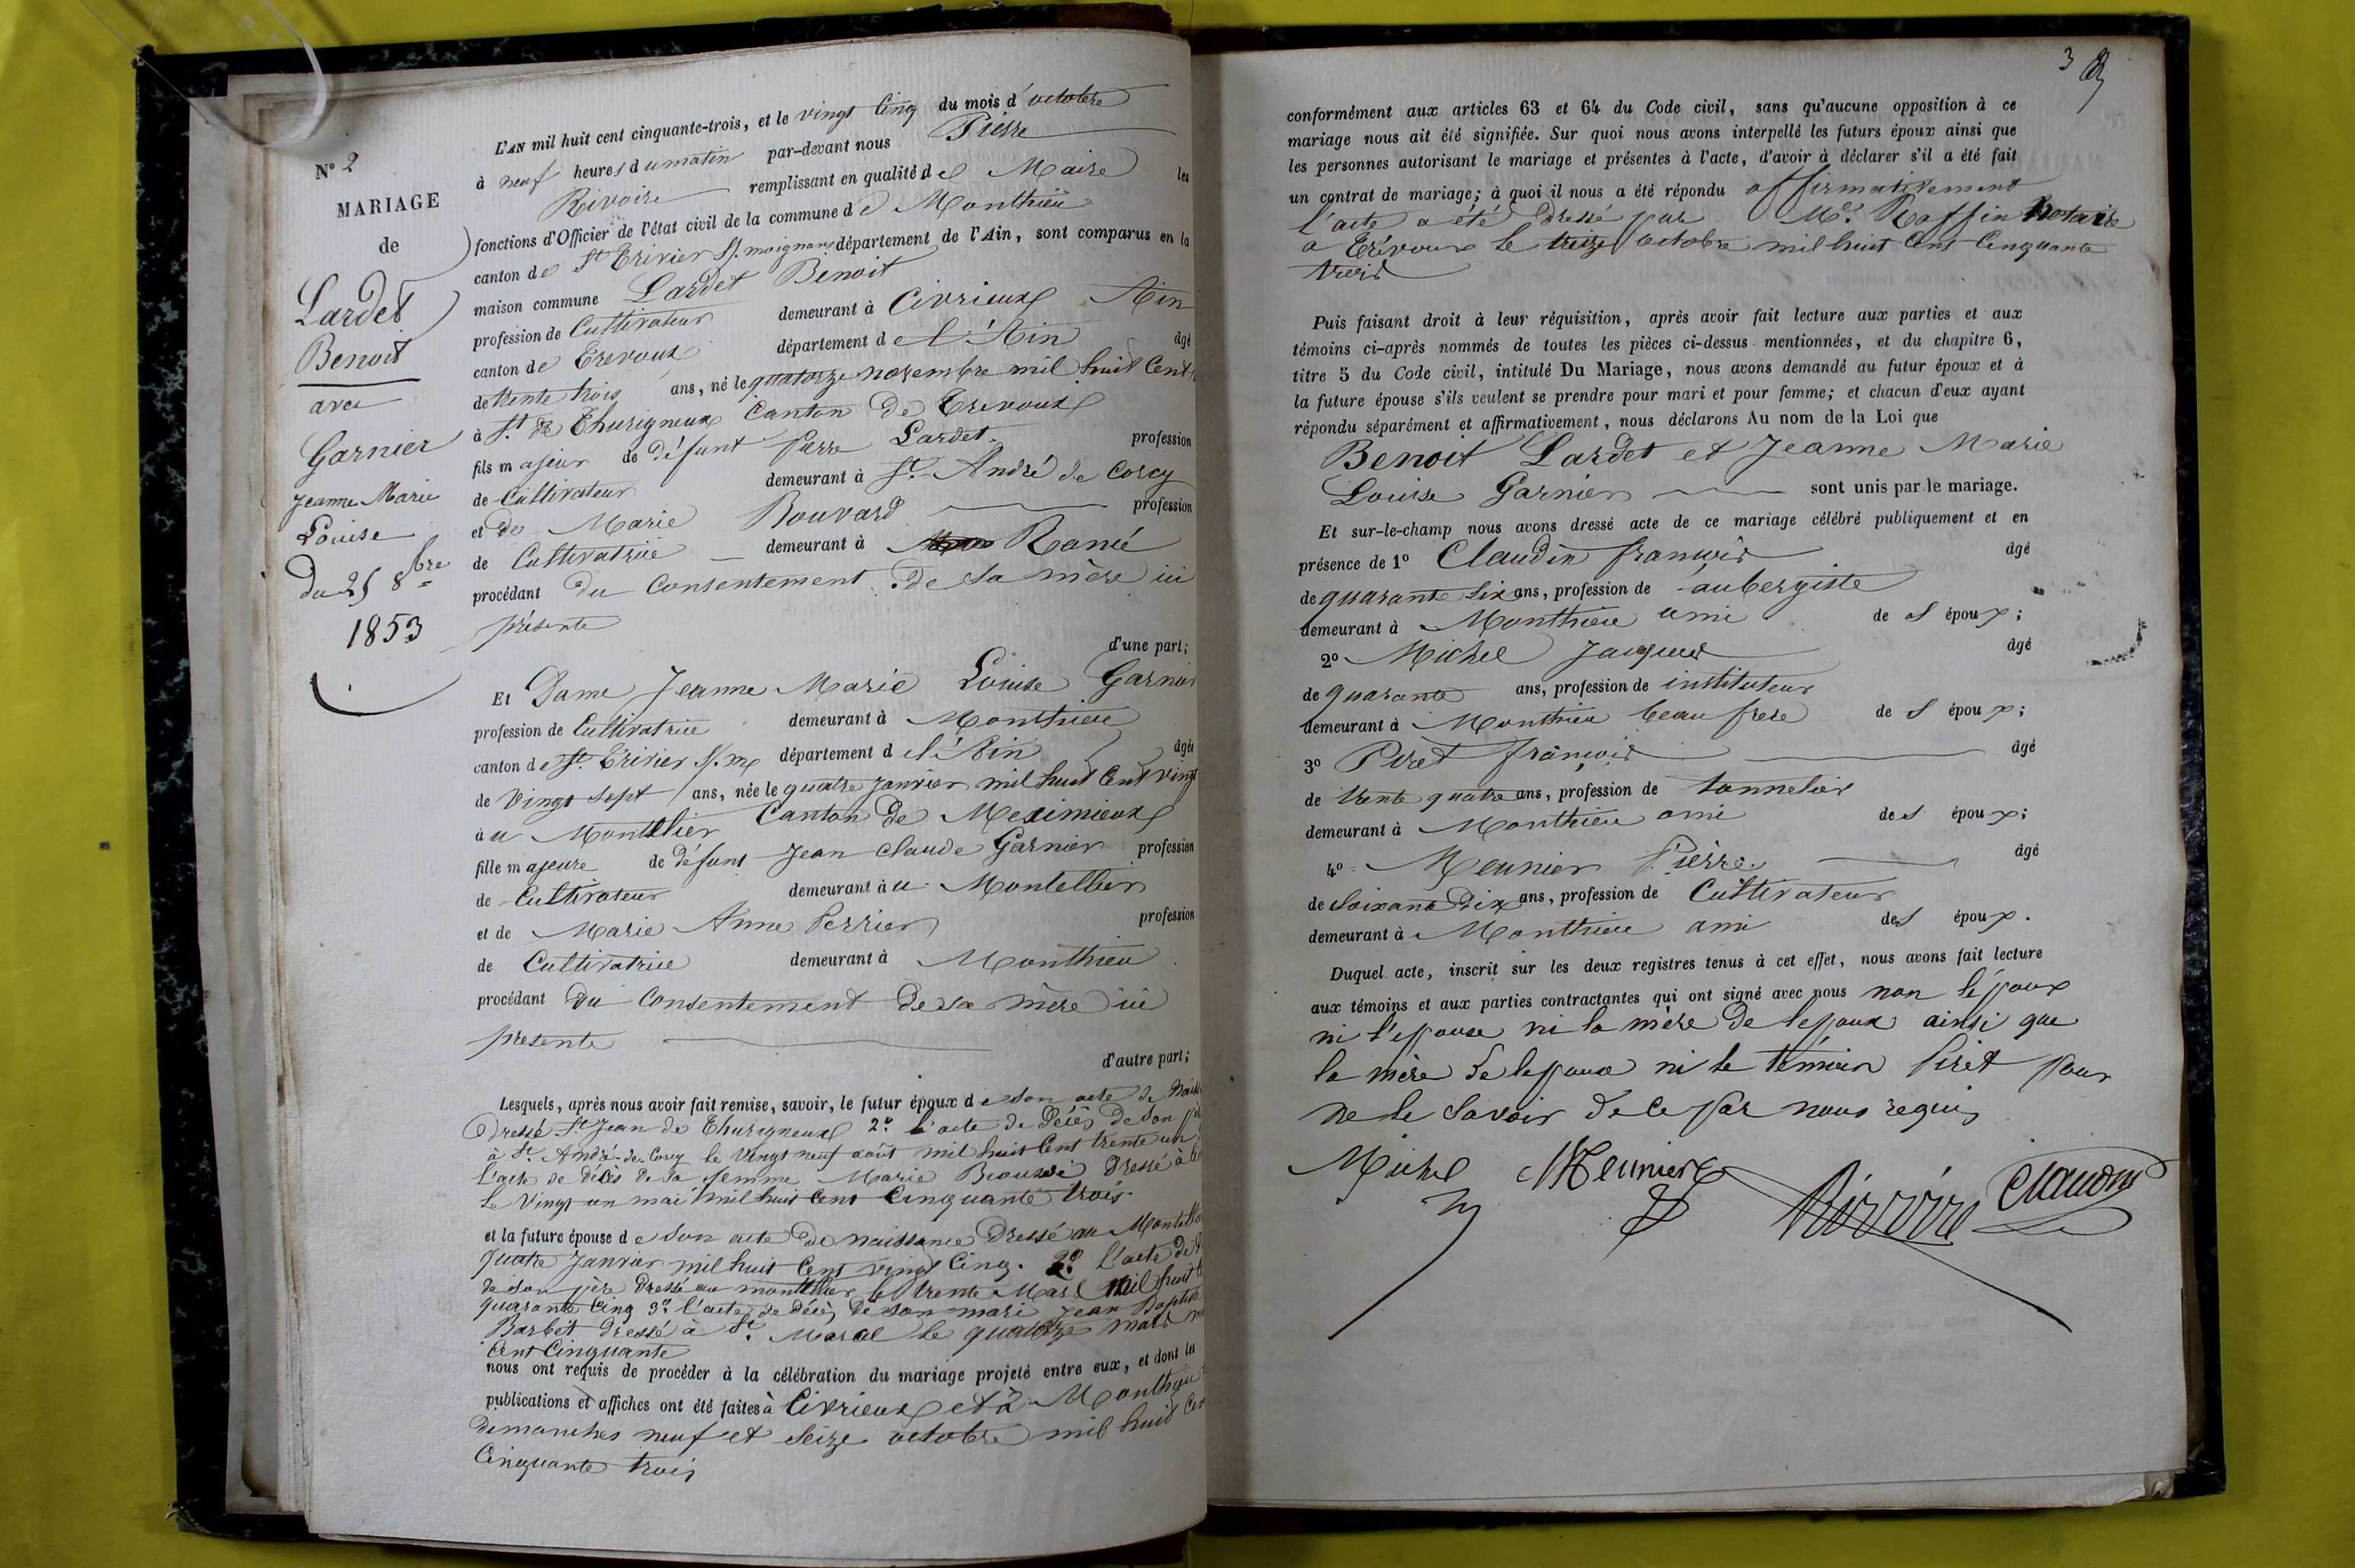 N° 2
MARIAGE
de
Lardet
Benoit
avec
Garnier
Jeanne Marie
Louise
Du 25 8bre
1853
L'AN mil huit cent cinquante-trois, et le vingt Cinq du mois d'octobre
à neuf heures du matin par-devant nous Pierre
Rivoire remplissant en qualité de Maire les
fonctions d'Officier de l'état civil de la commune de Monthieu
canton de St Trivier S/. moignans département de l'Ain, sont comparus en la
maison commune Lardet Benoit
profession de Cultivateur demeurant à Civrieux Ain
canton de Trevoux département de l'Ain âgé
de trente trois ans, né le quatorze novembre mil huit Cent
à St. de Thurigneux Canton de Trevoux
fils majeur de défunt Pierre Lardet. profession
de Cultivateur demeurant à St. André de Corcy
et de Marie Bouvard profession
de Cultivatrice demeurant à Rancé
procédant du Consentement de sa mère ici
présente
d'une part;
Et Dame Jeanne Marie Louise Garnier
profession de Cultivatrice demeurant à Monthieu
canton de St. Trivier S/. m département de l'Ain âgée
de Vingt sept ans, née le quatre janvier mil huit Cent vingt
à u Montellier Canton de Meximieux
fille majeure de défunt Jean Claude Garnier profession
de Cultivateur demeurant à u Montellier
et de Marie Anne Perrier profession
de Cultivatrice demeurant à Monthieu
procédant du Consentement de sa mère ici
presente
d'autre part;
Lesquels, après nous avoir fait remise, savoir, le futur époux de son acte de
dressé St Jean de Thurigneux 2° l'acte de Décès de son
à St. André-de-Corcy le Vingt neuf août mil huit Cent trente un
L'acte de décès de sa femme Marie dressé à
le Vingt un mai mil huit Cent Cinquante trois.
et la future épouse de son acte de naissance Dressé au
quatre Janvier mil huit Cent vingt Cinq. 2° L'acte de
de son père dressé au montellier le trente Mars mil huit
quarante Cinq 3° l'acte de Décès de son mari Jean Baptiste
Barbet dressé à St. Marcel le quatorze mars
Cent Cinquante
nous ont requis de procéder à la célébration du mariage projeté entre eux, et dont les
publications et affiches ont été faites à Civrieux et à Monthieu
dimanches neuf et Seize octobre mil huit Cent
Cinquante trois
3
conformément aux articles 63 et 64 du Code civil, sans qu'aucune opposition à ce
mariage nous ait été signifiée. Sur quoi nous avons interpellé les futurs époux ainsi que
les personnes autorisant le mariage et présentes à l'acte, d'avoir à déclarer s'il a été fait
un contrat de mariage; à quoi il nous a été répondu affirmativement
l'acte a été dressé par Me. Raffin Notaire
a Trévoux le treize octobre mil huit Cent Cinquante
trois
Puis faisant droit à leur réquisition, après avoir fait lecture aux parties et aux
témoins ci-après nommés de toutes les pièces ci-dessus mentionnées, et du chapitre 6,
titre 5 du Code civil, intitulé Du Mariage, nous avons demandé au futur époux et à
la future épouse s'ils veulent se prendre pour mari et pour femme; et chacun d'eux ayant
répondu séparément et affirmativement, nous déclarons Au nom de la Loi que
Benoit Lardet et Jeanne Marie
Louise Garnier sont unis par le mariage.
Et sur-le-champ nous avons dressé acte de ce mariage célébré publiquement et en
présence de 1° Claudin françois âgé
de quarante six ans, profession de aubergiste
demeurant à Monthieu ami de s époux;
2° Michel Jacques âgé
de quarante ans, profession de instituteur
demeurant à Monthieu beau frere de s époux;
3° Piret françois âgé
de trente quatre ans, profession de tonnelier
demeurant à Monthieu ami de s époux;
4° Meunier Pierre. âgé
de Soixante Dix ans, profession de Cultivateur
demeurant à Monthieu ami des époux.
Duquel acte, inscrit sur les deux registres tenus à cet effet, nous avons fait lecture
aux témoins et aux parties contractantes qui ont signé avec nous non l'époux
ni l'epouse ni la mère de lepoux ainsi que
la mère de lepoux ni le témoin Piret pour
ne le Savoir de ce par nous requis
Michel Meunier Rivoire Claudin